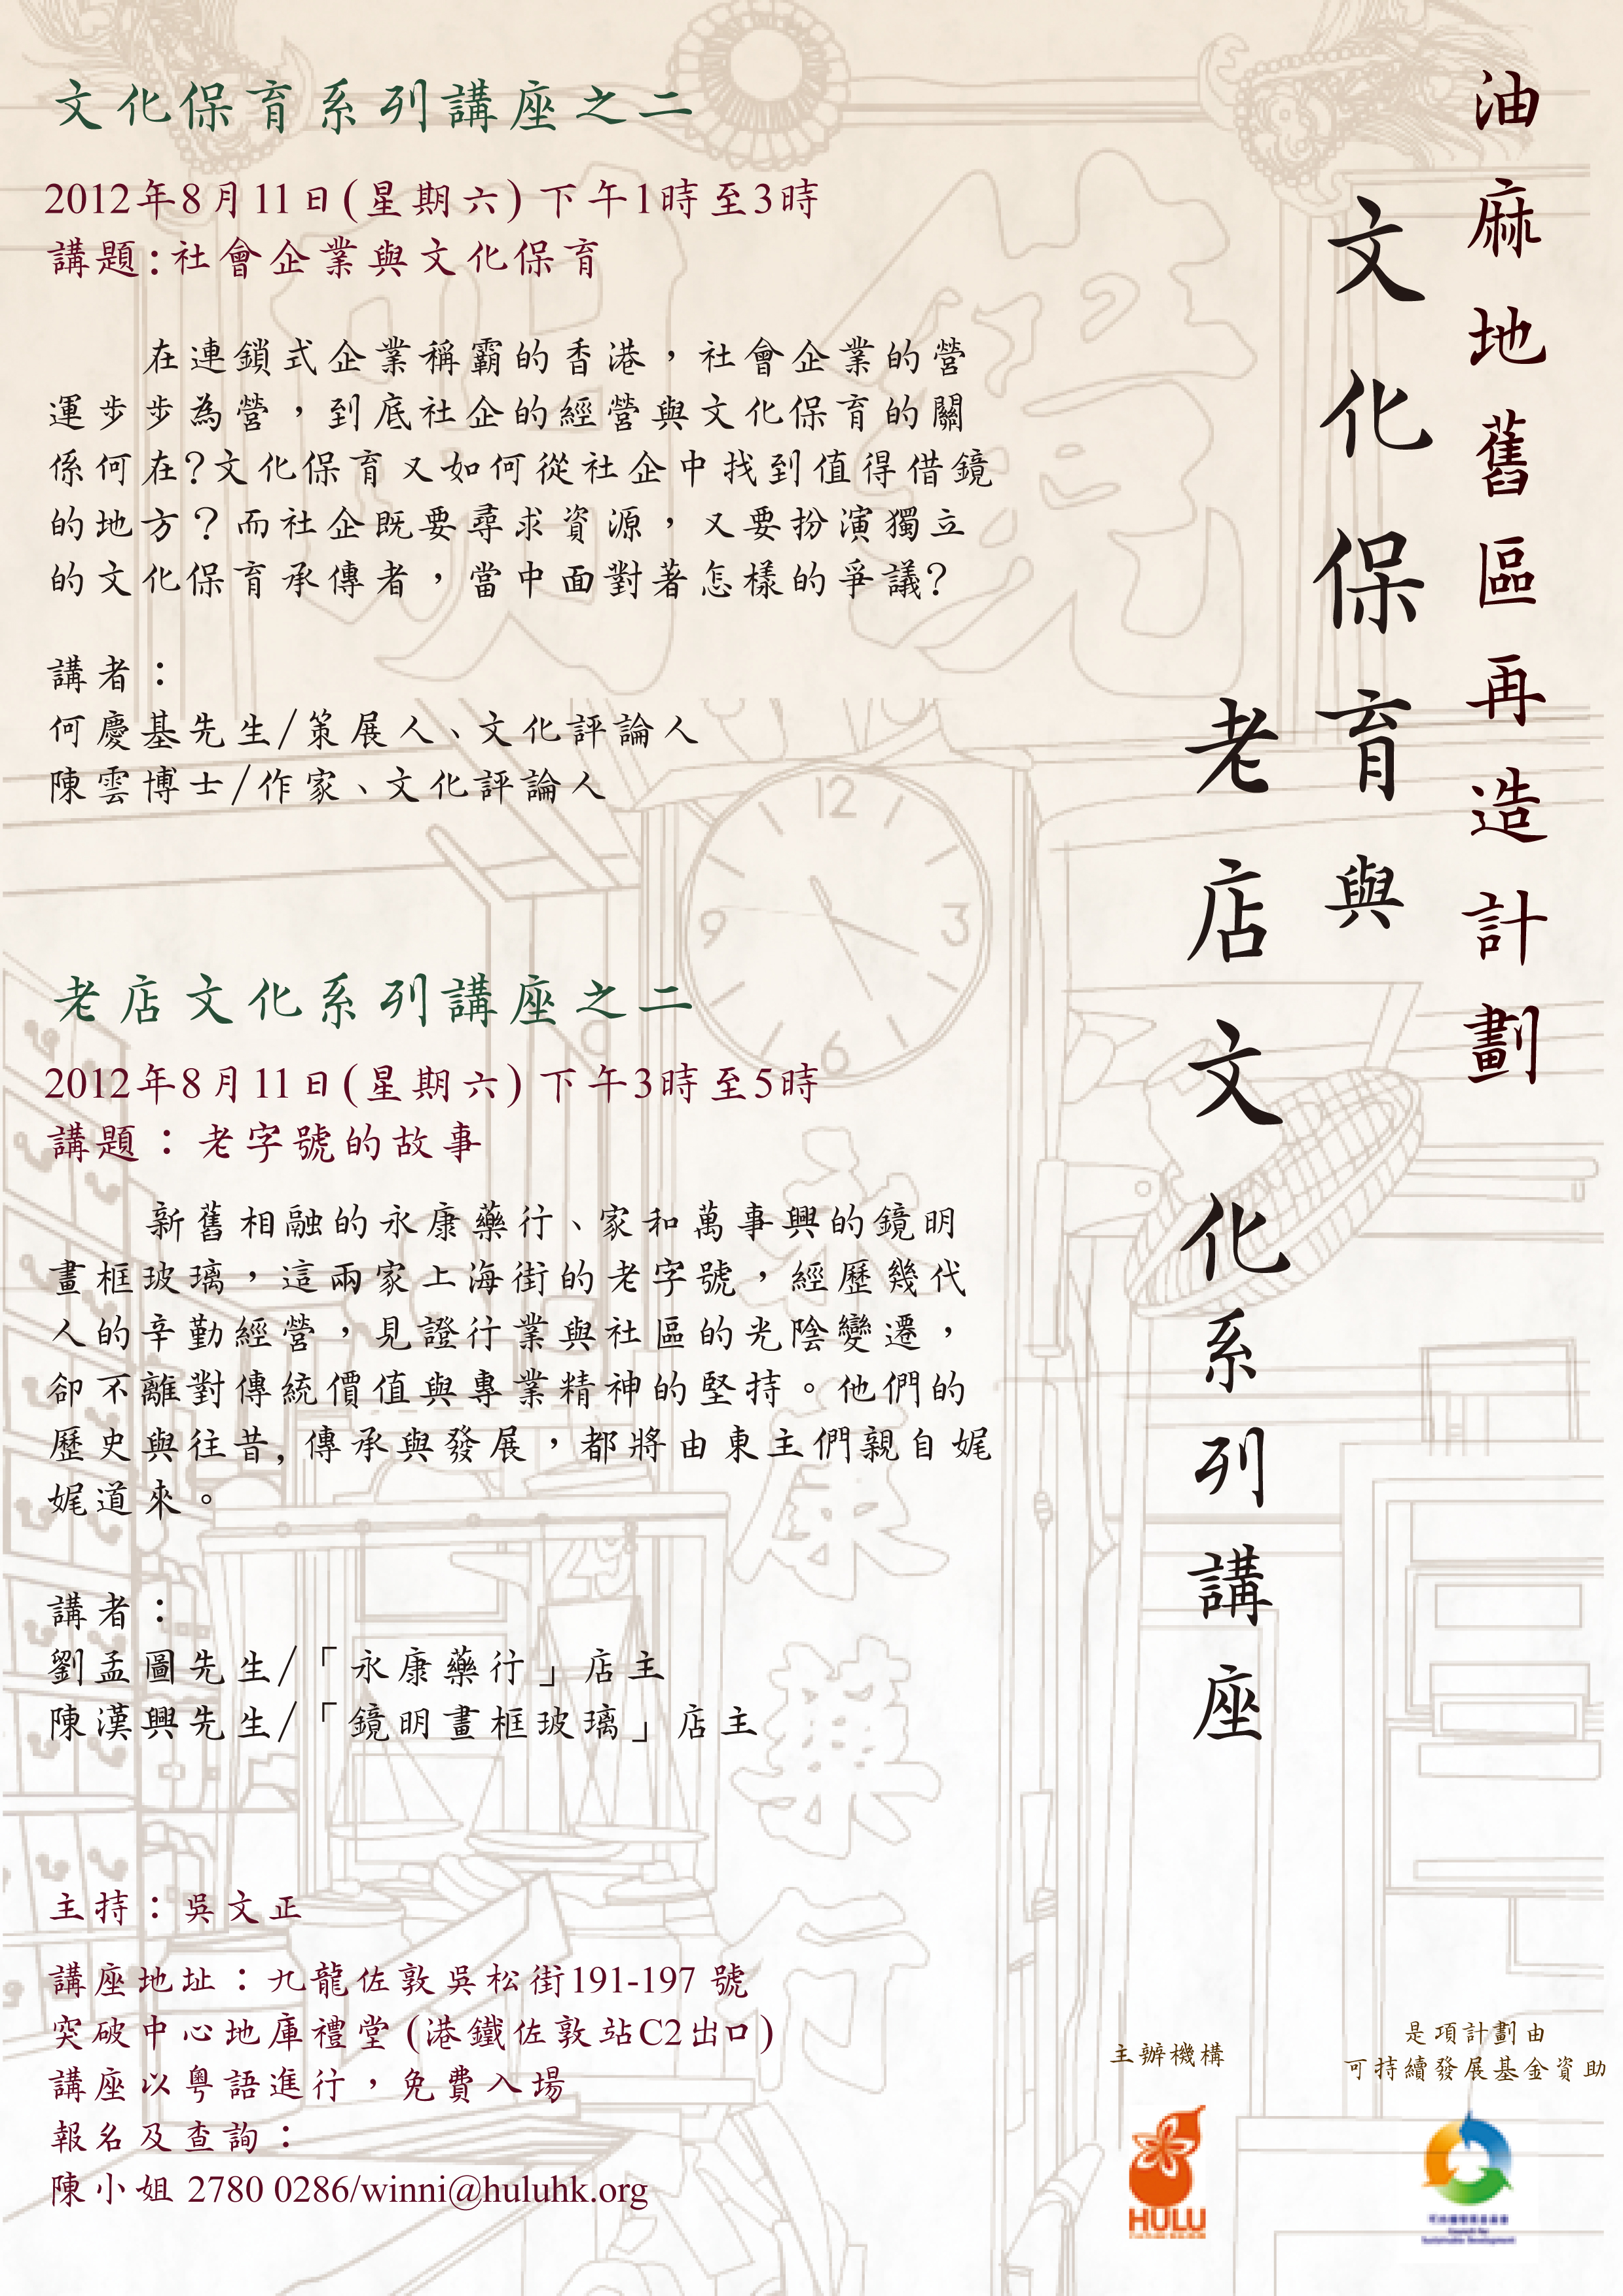 油麻地舊區再造計劃
文化保育與
老店文化系列講座
文化保育系列講座之二
2012年8月11日(星期六) 下午1時至3時
講題:社會企業與文化保育
在連鎖式企業稱霸的香港，社會企業的營
運步步為營，到底社企的經營與文化保育的關
係何在?文化保育又如何從社企中找到值得借鏡
的地方？而社企既要尋求資源，又要扮演獨立
的文化保育承傳者，當中面對著怎樣的爭議?
講者：
何慶基先生/策展人、文化評論人
陳雲博士/作家、文化評論人
老店文化系列講座之二
2012年8月11日(星期六) 下午3時至5時
講題：老字號的故事
新舊相融的永康藥行、家和萬事興的鏡明
畫框玻璃，這兩家上海街的老字號，經歷幾代
人的辛勤經營，見證行業與社區的光陰變遷，
卻不離對傳統價值與專業精神的堅持。他們的
歷史與往昔,傳承與發展，都將由東主們親自娓
娓道來。
講者：
劉孟圖先生/「永康藥行」店主
陳漢興先生/「鏡明畫框玻璃」店主
主持：吳文正
講座地址：九龍佐敦吳松街191-197 號
突破中心地庫禮堂 (港鐵佐敦站C2出口)
講座以粵語進行，免費入場
報名及查詢：
陳小姐 2780 0286/winni@huluhk.org
主辦機構
HULU
是項計劃由
可持續發展基金資助
可持續發展委員會
Council for
Sustainable Development
明鏡
12
3
6
9
29
永康藥行